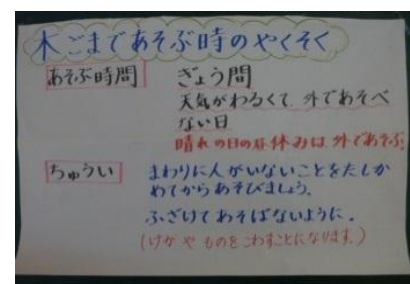 木ごまであそぶ時のやくそく
あそぶ時間 ぎょう間
天気がわるくて外であそべ
ない日
晴れの日の昼休みは外であそぶ。
ちゅうい まわりに人がいないことをたしか
めてからあそびましょう。
ふざけてあそばないように。
(けがやものをこわすことになります。)